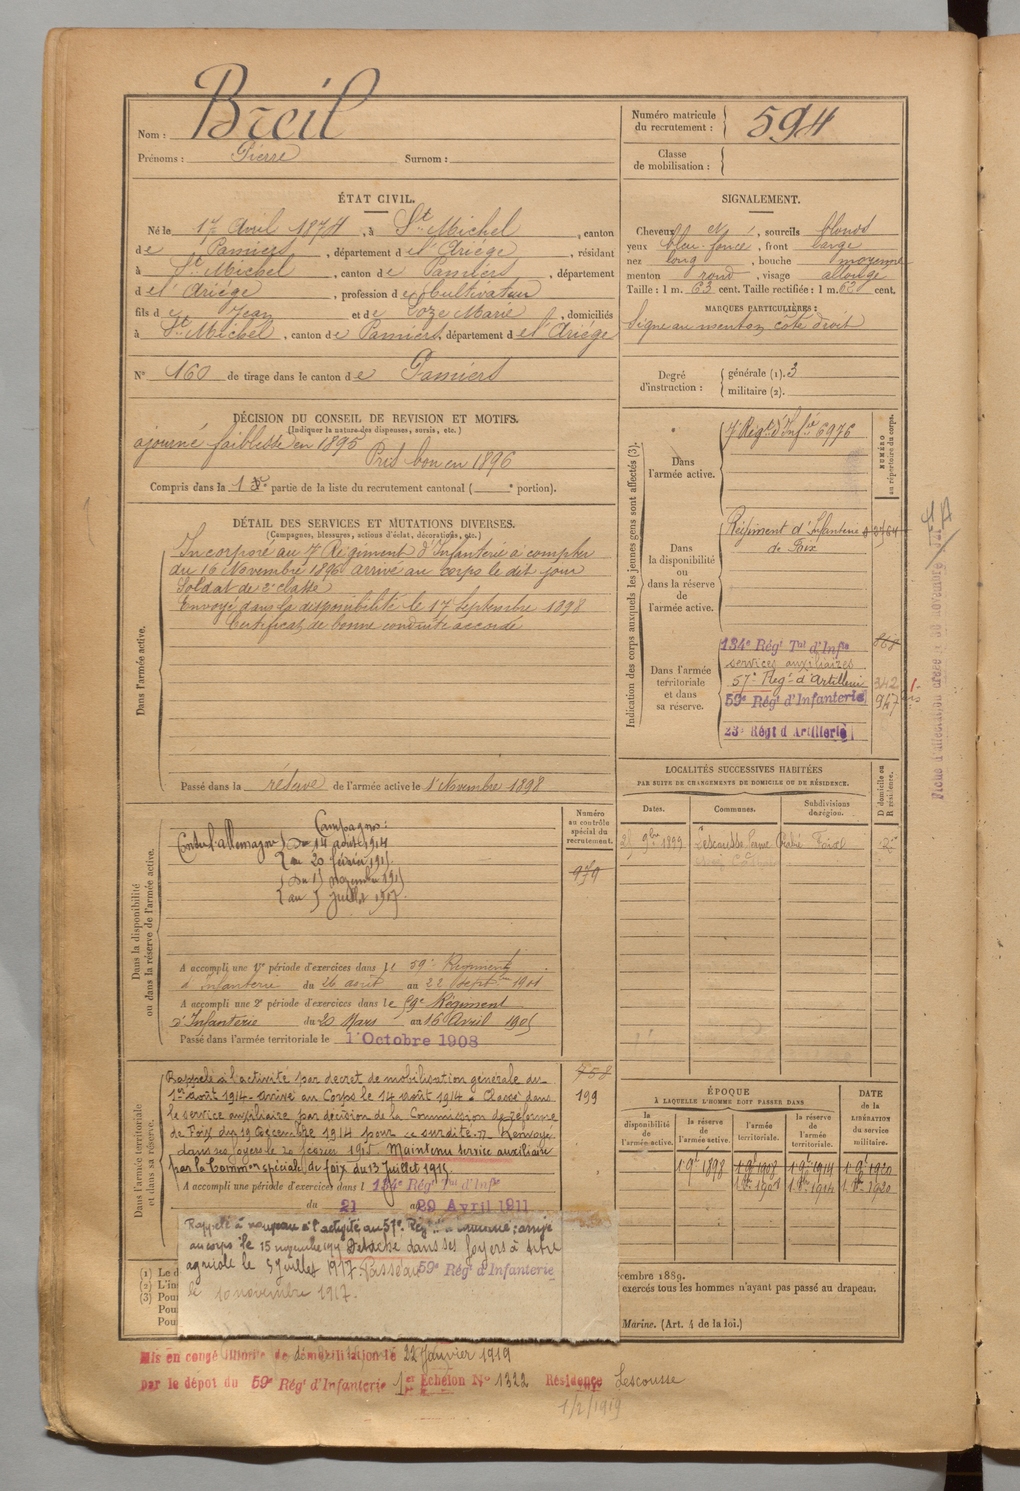 Nom : Breil
Prénoms : Pierre Surnom :
Numéro matricule du recrutement : 594
Classe de mobilisation :
ÉTAT CIVIL.
Né le 17 Avril 1874, à St Michel, canton
de Pamiers, département de l'Ariége, résidant
à St Michel, canton de Pamiers, département
de l'Ariége, profession de Cultivateur
fils de Jean et de Soze Marie, domiciliés
à St Michel, canton de Pamiers, département de l'Ariége
No 160 de tirage dans le canton de Pamiers
SIGNALEMENT.
Cheveux et, sourcils blonds
yeux bleu foncé, front large
nez long, bouche moyenne
menton rond, visage allongé
Taille : 1 m. 63 cent. Taille rectifiée : 1 m. 62 cent.
MARQUES PARTICULIÈRES :
Signe au menton côté droit
Degré d'instruction : générale (1). 3
militaire (2).
DÉCISION DU CONSEIL DE REVISION ET MOTIFS.
(Indiquer la nature des dispenses, sursis, etc.)
ajourné faiblesse en 1895
Pris bon en 1896
Compris dans la 1re partie de la liste du recrutement cantonal ( e portion).
DÉTAIL DES SERVICES ET MUTATIONS DIVERSES.
(Campagnes, blessures, actions d'éclat, décorations, etc.)
Dans l'armée active.
Incorporé au 7e Régiment d'Infanterie à compter
du 16 Novembre 1896 arrivé au corps le dit jour
Soldat de 2e classe
Envoyé dans la disponibilité le 17 Septembre 1898
Certificat de bonne conduite accordé
Passé dans la réserve de l'armée active le 1er Novembre 1898
Indication des corps auxquels les jeunes gens sont affectés (3).
NUMÉRO au répertoire du corps.
Dans l'armée active.
7e Régt d'Infie 6976
Dans la disponibilité ou dans la réserve de l'armée active.
Régiment d'Infanterie
de Foix
Dans l'armée territoriale et dans sa réserve.
134e Régt Tal d'Infie 868
services auxiliaires
57e Régt d'Artillerie 342
59e Régt d'Infanterie 947
23e Régt d'Artillerie
LOCALITÉS SUCCESSIVES HABITÉES
PAR SUITE DE CHANGEMENTS DE DOMICILE OU DE RÉSIDENCE.
Dates. Communes. Subdivisions de région. D domicile ou R résidence.
9bre 1899 Lescousse Foix
Dans la disponibilité ou dans la réserve de l'armée active.
Numéro au contrôle spécial du recrutement.
939
Campagnes :
Contre l'allemagne du 14 août 1914
au 20 février 1915
du 15 novembre 1915
au 5 juillet 1917
A accompli une 1re période d'exercices dans le 59e Régiment
d'Infanterie du 26 août au 22 Septre 1901
A accompli une 2e période d'exercices dans le 59e Régiment
d'Infanterie du 20 Mars au 16 Avril 1905
Passé dans l'armée territoriale le 1er Octobre 1908
Dans l'armée territoriale et dans sa réserve.
758
199
Rappelé à l'activité par décret de mobilisation générale du
1er août 1914. arrivé au Corps le 14 août 1914. Classé dans
le service auxiliaire par décision de la Commission de réforme
de Foix du 19 Décembre 1914 pour "surdité". Renvoyé
dans ses foyers le 20 février 1915. Maintenu service auxiliaire
par la Common spéciale de foix du 13 Juillet 1915
A accompli une période d'exercices dans l 134e Régt Tal d'Infie
du 21 au 29 Avril 1911
Rappelé à nouveau à l'activité au 57e Régt d'artillerie ; arrivé
au corps le 15 novembre 1915 Détaché dans ses foyers à titre
agricole le 5 juillet 1917. Passé au 59e Régt d'Infanterie
le 10 novembre 1917.
ÉPOQUE
À LAQUELLE L'HOMME DOIT PASSER DANS
la disponibilité de l'armée active. la réserve de l'armée active. l'armée territoriale. la réserve de l'armée territoriale.
DATE de la LIBÉRATION du service militaire.
1 9bre 1898 1 9bre 1908 1 9bre 1914 1 9bre 1920
1 8bre 1908 1 8bre 1914 1 8bre 1920
(1) Le d
(2) L'in
(3) Pour
Pou
Pou
cembre 1889.
exercés tous les hommes n'ayant pas passé au drapeau.
Marine. (Art. 4 de la loi.)
Mis en congé illimité de démobilisation le 22 Janvier 1919
par le dépôt du 59e Régt d'Infanterie 1er Échelon No 1322 Résidence Lescousse
1/2/1919